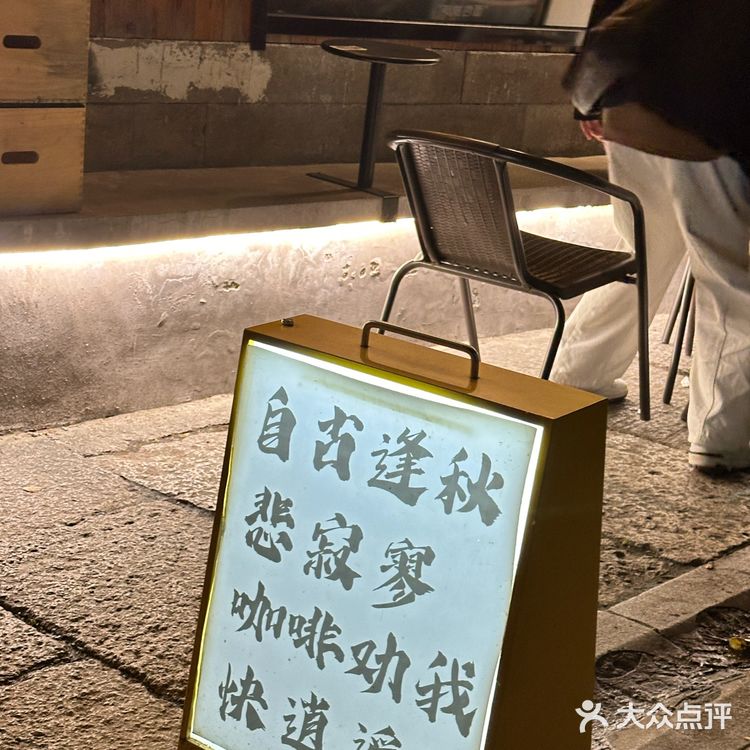 自古逢秋
悲寂寥
咖啡劝我
快逍遥
大众点评